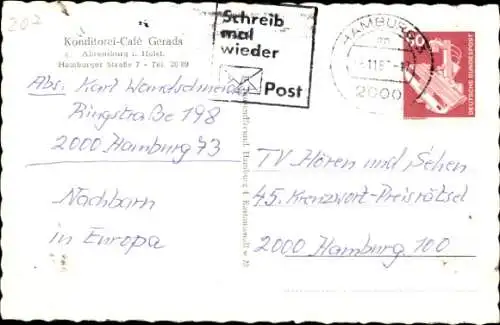 202
Konditorei-Café Gerads
Ahrensburg i. Holst.
Hamburger Straße 7 - Tel. 20 89
Schreib
mal
wieder
Post
HAMBURG
2000
60
DEUTSCHE BUNDESPOST
Abs: Karl
Ringstraße 198
2000 Hamburg 73
Nachbarn
in Europa
TV Hören und Sehen
45. Kreuzwort-Preisrätsel
2000 Hamburg 100